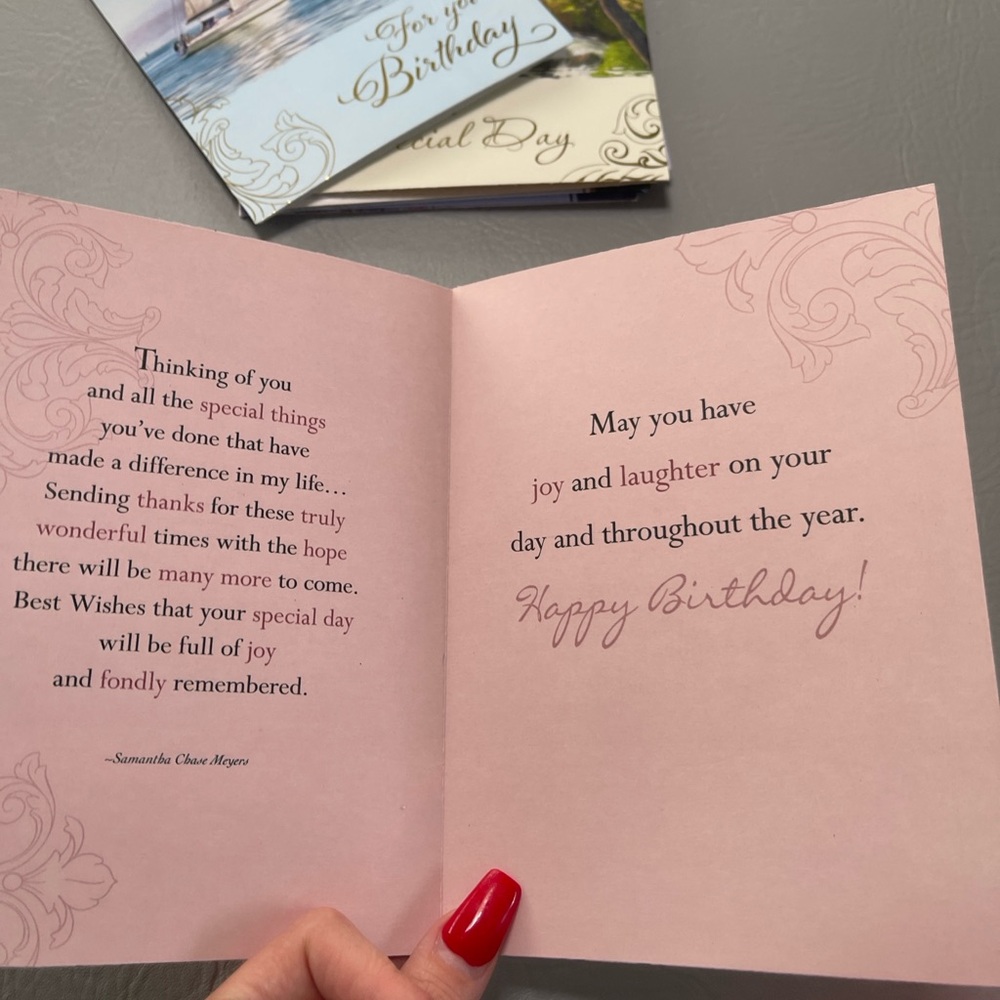 For you
Birthday
Day
Thinking of you
and all the special things
you've done that have
made a difference in my life...
Sending thanks for these truly
wonderful times with the hope
there will be many more to come.
Best Wishes that your special day
will be full of joy
and fondly remembered.
~Samantha Chase Meyers
May you have
joy and laughter on your
day and throughout the year.
Happy Birthday!